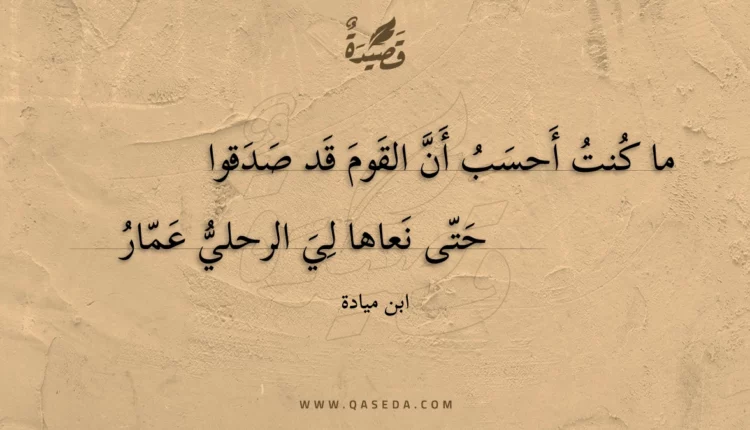 قَصِيدَةٌ
ما كُنتُ أَحسَبُ أَنَّ القَومَ قَد صَدَقوا
حَتّى نَعاها لِيَ الرحليُّ عَمّارُ
ابن ميادة
WWW.QASEDA.COM